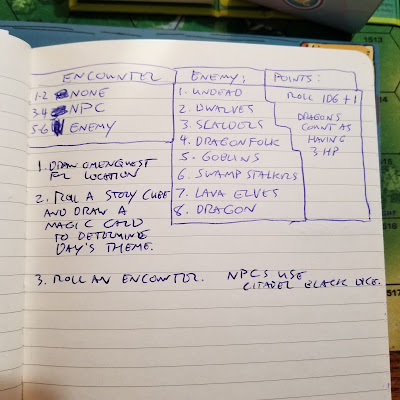 ENCOUNTER
1-2 NONE
3-4 NPC
5-6 ENEMY
ENEMY:
1. UNDEAD
2. DWALVES
3. SLALDERS
4. DRAGONFOLK
5. GOBLINS
6. SWAMP STALKERS
7. LAVA ELVES
8. DRAGON
POINTS:
ROLL 1D6 + 1
DRAGONS
COUNT AS
HAVING
3 HP
1. DRAW OMENQUEST
FOR LOCATION
2. ROLL A STORY CUBE
AND DRAW A
MAGIC CARD
TO DETERMINE
DAY'S THEME.
3. ROLL AN ENCOUNTER. NPCS USE
CITADEL BLACK DICE.
1513
1514
1515
1516
1517